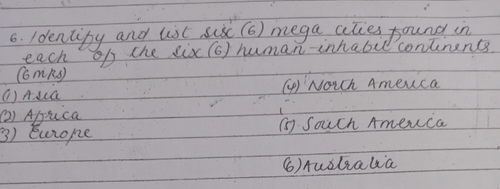 6. Identify and list six (6) mega cities found in
each of the six (6) human-inhabit continents
(6mks)
(1) Asia
(4) North America
(2) Africa
(5) South America
3) Europe
(6) Australia